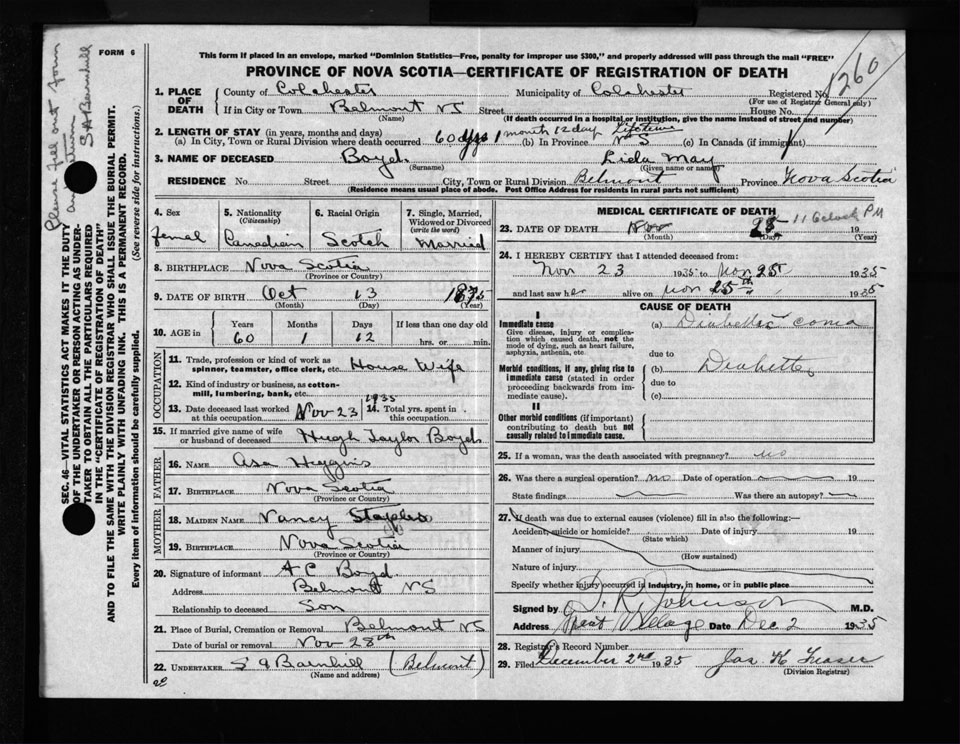 FORM 6
This form if placed in an envelope, marked "Dominion Statistics—Free, penalty for improper use $300," and properly addressed will pass through the mail "FREE"
PROVINCE OF NOVA SCOTIA—CERTIFICATE OF REGISTRATION OF DEATH
1260
1. PLACE OF DEATH County of Colchester Municipality of Colchester Registered No.
(For use of Registrar General only)
If in City or Town Belmont NS Street House No.
(Name) (If death occurred in a hospital or institution, give the name instead of street and number)
2. LENGTH OF STAY (in years, months and days)
(a) In City, Town or Rural Division where death occurred 60 yrs 1 month 12 day (b) In Province Lifetime NS (c) In Canada (if immigrant)
3. NAME OF DECEASED Boyd Liela May
(Surname) (Given name or names)
RESIDENCE No. Street City, Town or Rural Division Belmont Province Nova Scotia
(Residence means usual place of abode. Post Office Address for residents in rural parts not sufficient)
4. Sex 5. Nationality (Citizenship) 6. Racial Origin 7. Single, Married, Widowed or Divorced (write the word)
femal Canadian Scotch Married
8. BIRTHPLACE Nova Scotia
(Province or Country)
9. DATE OF BIRTH Oct 13 1875
(Month) (Day) (Year)
10. AGE in Years Months Days If less than one day old
60 1 12 hrs. or min.
OCCUPATION
11. Trade, profession or kind of work as spinner, teamster, office clerk, etc. House Wife
12. Kind of industry or business, as cotton-mill, lumbering, bank, etc.
13. Date deceased last worked at this occupation Nov 23 1935 14. Total yrs. spent in this occupation
15. If married give name of wife or husband of deceased Hugh Taylor Boyd
FATHER
16. NAME Asa Higgins
17. BIRTHPLACE Nova Scotia
(Province or Country)
MOTHER
18. MAIDEN NAME Nancy Staples
19. BIRTHPLACE Nova Scotia
(Province or Country)
20. Signature of informant A C Boyd
Address Belmont NS
Relationship to deceased Son
21. Place of Burial, Cremation or Removal Belmont NS
Date of burial or removal Nov 28th
22. UNDERTAKER S A Barnhill (Belmont)
(Name and address)
MEDICAL CERTIFICATE OF DEATH
23. DATE OF DEATH Nov 25 11 oclock PM 19
(Month) (Day) (Year)
24. I HEREBY CERTIFY that I attended deceased from:
Nov 23 1935 to Nov 25 1935
and last saw her alive on Nov 25th 1935
CAUSE OF DEATH
I
Immediate cause (a) Diabetic coma
Give disease, injury or complication which caused death, not the mode of dying, such as heart failure, asphyxia, asthenia, etc.
due to
Morbid conditions, if any, giving rise to immediate cause (stated in order proceeding backwards from immediate cause). (b) Diabetes
due to
(c)
II
Other morbid conditions (if important) contributing to death but not causally related to immediate cause.
25. If a woman, was the death associated with pregnancy? no
26. Was there a surgical operation? no Date of operation 19
State findings Was there an autopsy?
27. If death was due to external causes (violence) fill in also the following:—
Accident, suicide or homicide? Date of injury 19
(State which)
Manner of injury
(How sustained)
Nature of injury
Specify whether injury occurred in industry, in home, or in public place
Signed by T. R. Johnson M.D.
Address Great Village Date Dec 2 1935
28. Registrar's Record Number
29. Filed December 2nd 1935 Jas. K Fraser
(Division Registrar)
Please fill out form and return S A Barnhill
SEC. 46—VITAL STATISTICS ACT MAKES IT THE DUTY
OF THE UNDERTAKER OR PERSON ACTING AS UNDER-
TAKER TO OBTAIN ALL THE PARTICULARS REQUIRED
IN THE "CERTIFICATE OF REGISTRATION OF DEATH"
AND TO FILE THE SAME WITH THE DIVISION REGISTRAR WHO SHALL ISSUE THE BURIAL PERMIT.
WRITE PLAINLY WITH UNFADING INK. THIS IS A PERMANENT RECORD.
Every item of information should be carefully supplied. (See reverse side for instructions.)